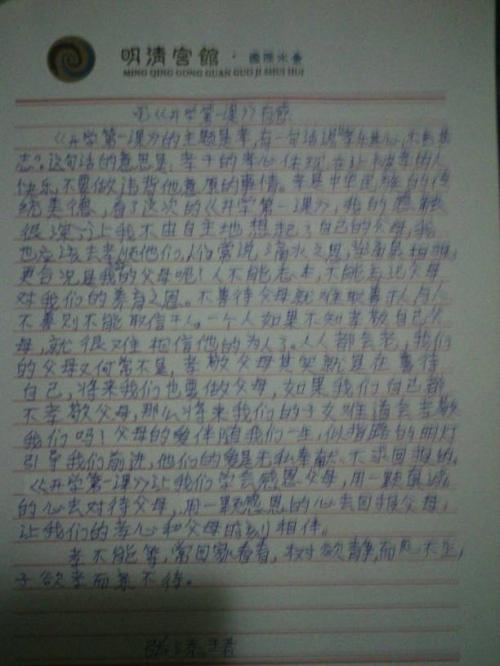 明清宫館·國際水會
MING QING GONG GUAN GUO JI SHUI HUI
《开学第一课》有感
《开学第一课》的主题是孝,有一句话说"孝子其心,不
志",这句话的意思是:孝子的孝心体现在让的人
快乐,不要做违背他意愿的事情。孝是中华民族的传
统美德,看了这次的《开学第一课》,我的感触
很深,让我不由自主地想起了自己的父母,我
也应该去孝他们,人们常说:滴水之恩,当涌泉相报,
更合况是我的父母呢!人不能忘本,不能忘记父母
对我们的养育之恩。不善待父母就难取善于人,与人
不善则不能取信于人。一个人如果不知孝敬自己父
母,就很难相信他的为人了。人人都会老,我们
的父母又何常不是,孝敬父母其实就是在善待
自己,将来我们也要做父母,如果我们自己都
不孝敬父母,那么将来我们的子女难道会孝敬
我们吗!父母的爱伴随我们一生,似指路的明灯
引导我们前进,他们的爱是无私奉献、不求回报的。
《开学第一课》让我们学会感恩父母,用一颗真诚
的心去对待父母,用一颗感恩的心去回报父母,
让我们的孝心和父母时刻相伴。
孝不能等,常回家看看,树欲静,而风不止,
子欲孝而亲不待。